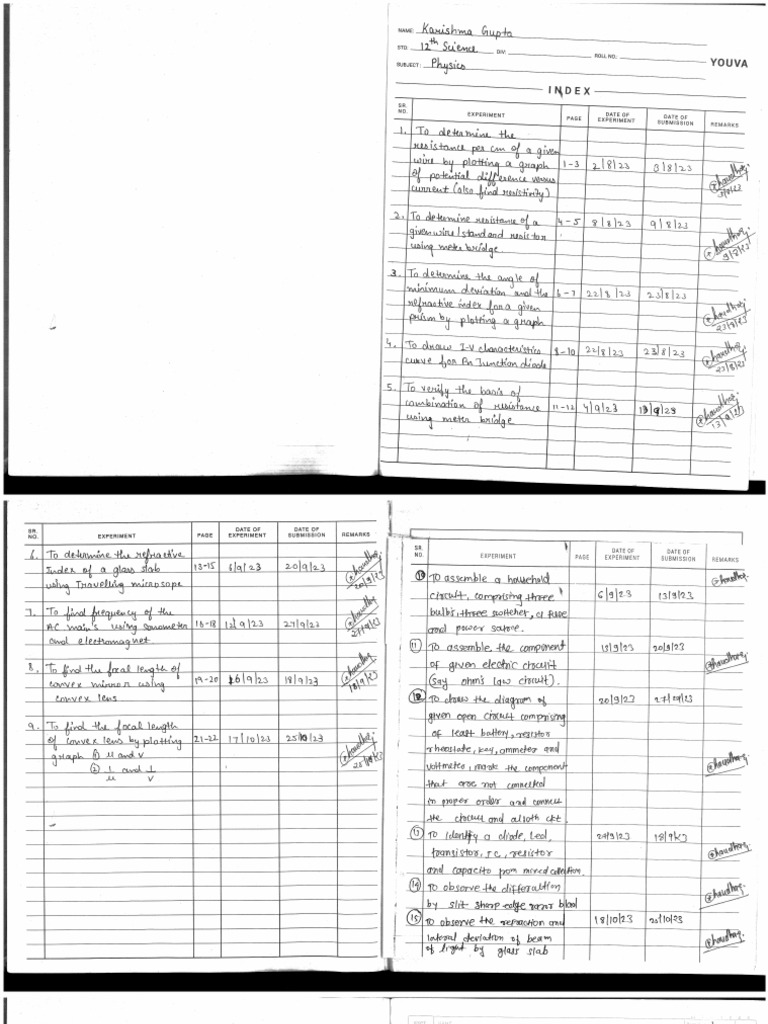 NAME: Karishma Gupta
STD.: 12th Science DIV.: ROLL NO.:
YOUVA
SUBJECT: Physics
INDEX
SR. NO. EXPERIMENT PAGE DATE OF EXPERIMENT DATE OF SUBMISSION REMARKS
1. To determine the
resistance per cm of a given
wire by plotting a graph 1-3 2/8/23 3/8/23
of potential difference versus
current (also find resistivity)
2. To determine resistance of a 4-5 8/8/23 9/8/23
given wire/standard resistor
using meter bridge. 9/8/23
3. To determine the angle of
minimum deviation and the 6-7 22/8/23 23/8/23
refractive index for a given
prism by plotting a graph
4. To draw I-V characteristics 8-10 22/8/23 23/8/23
curve for Pn Junction diode 23/8/23
5. To verify the basis of
combination of resistance 11-12 4/9/23 13/9/23
using meter bridge 13/9/23
SR. NO. EXPERIMENT PAGE DATE OF EXPERIMENT DATE OF SUBMISSION REMARKS
6. To determine the refractive
Index of a glass slab 13-15 6/9/23 20/9/23
using Travelling microsope 20/9/23
7. To find frequency of the
AC main's using sonometer 16-18 12/9/23 27/9/23
and electromagnet 27/9/23
8. To find the focal length of
convex mirror using 19-20 16/9/23 18/9/23
convex lens 18/9/23
9. To find the focal length
of convex lens by plotting 21-22 17/10/23 25/10/23
graph ① u and v
② 1/u and 1/v
SR. NO. EXPERIMENT PAGE DATE OF EXPERIMENT DATE OF SUBMISSION REMARKS
10 To assemble a household
circuit, comprising three 6/9/23 13/9/23
bulbs, three switches, a fuse
and power source.
11 To assemble the component 13/9/23 20/9/23
of given electric circuit
(say ohm's law circuit)
12 To draw the diagram of 20/9/23
given open circuit comprising
of least battery, resistor
rheostate, key, ammeter and
voltmeter, mark the component
that are not connected
in proper order and connect
the circuit and ckt.
13 To identify a diode, Led,
transistor, I.C, resistor
and capacito from mixed collection.
14 To observe the
by slit sharp edge
15 To observe the refraction and 18/10/23 25/10/23
lateral deviation of beam
of light by glass slab